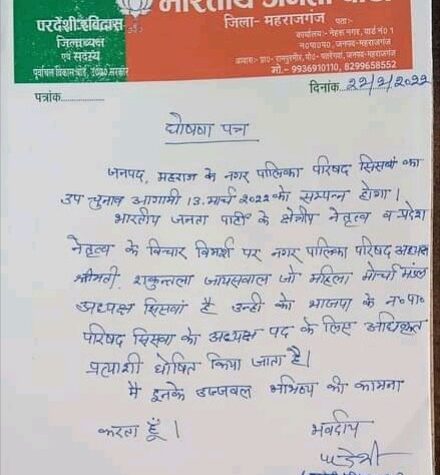 भारतीय जनता पार्टी
परदेशी रविदास
जिलाध्यक्ष
एवं सदस्य
पूर्वांचल विकास बोर्ड, उ०प्र० सरकार
जिला- महराजगंज
पता:-
कार्यालय:- नेहरू नगर, वार्ड नं० 1
न०पा०प०, जनपद-महराजगंज
आवास:- ग्रा०- रामपुरमीर, पो०- जनपद-महराजगंज
मो.- 9936910110, 8299658552
पत्रांक..............
दिनांक..22/2/2022
घोषणा पत्र
जनपद, महराज के नगर पालिका परिषद सिसवां का
उप चुनाव आगामी 13 मार्च 2022 को सम्पन्न होगा।
भारतीय जनता पार्टी के क्षेत्रीय नेतृत्व व प्रदेश
नेतृत्व के विचार विमर्श पर नगर पालिका परिषद अध्यक्ष
श्रीमती, शकुन्तला जायसवाल जो महिला मोर्चा मंडल
अध्यक्ष सिसवां है उन्ही को भाजपा के न०पा०
परिषद सिसवा के अध्यक्ष पद के लिए अधिकृत
प्रत्याशी घोषित किया जाता है।
मै इनके उज्जवल भविष्य की कामना
करता हूँ।
भवदीय